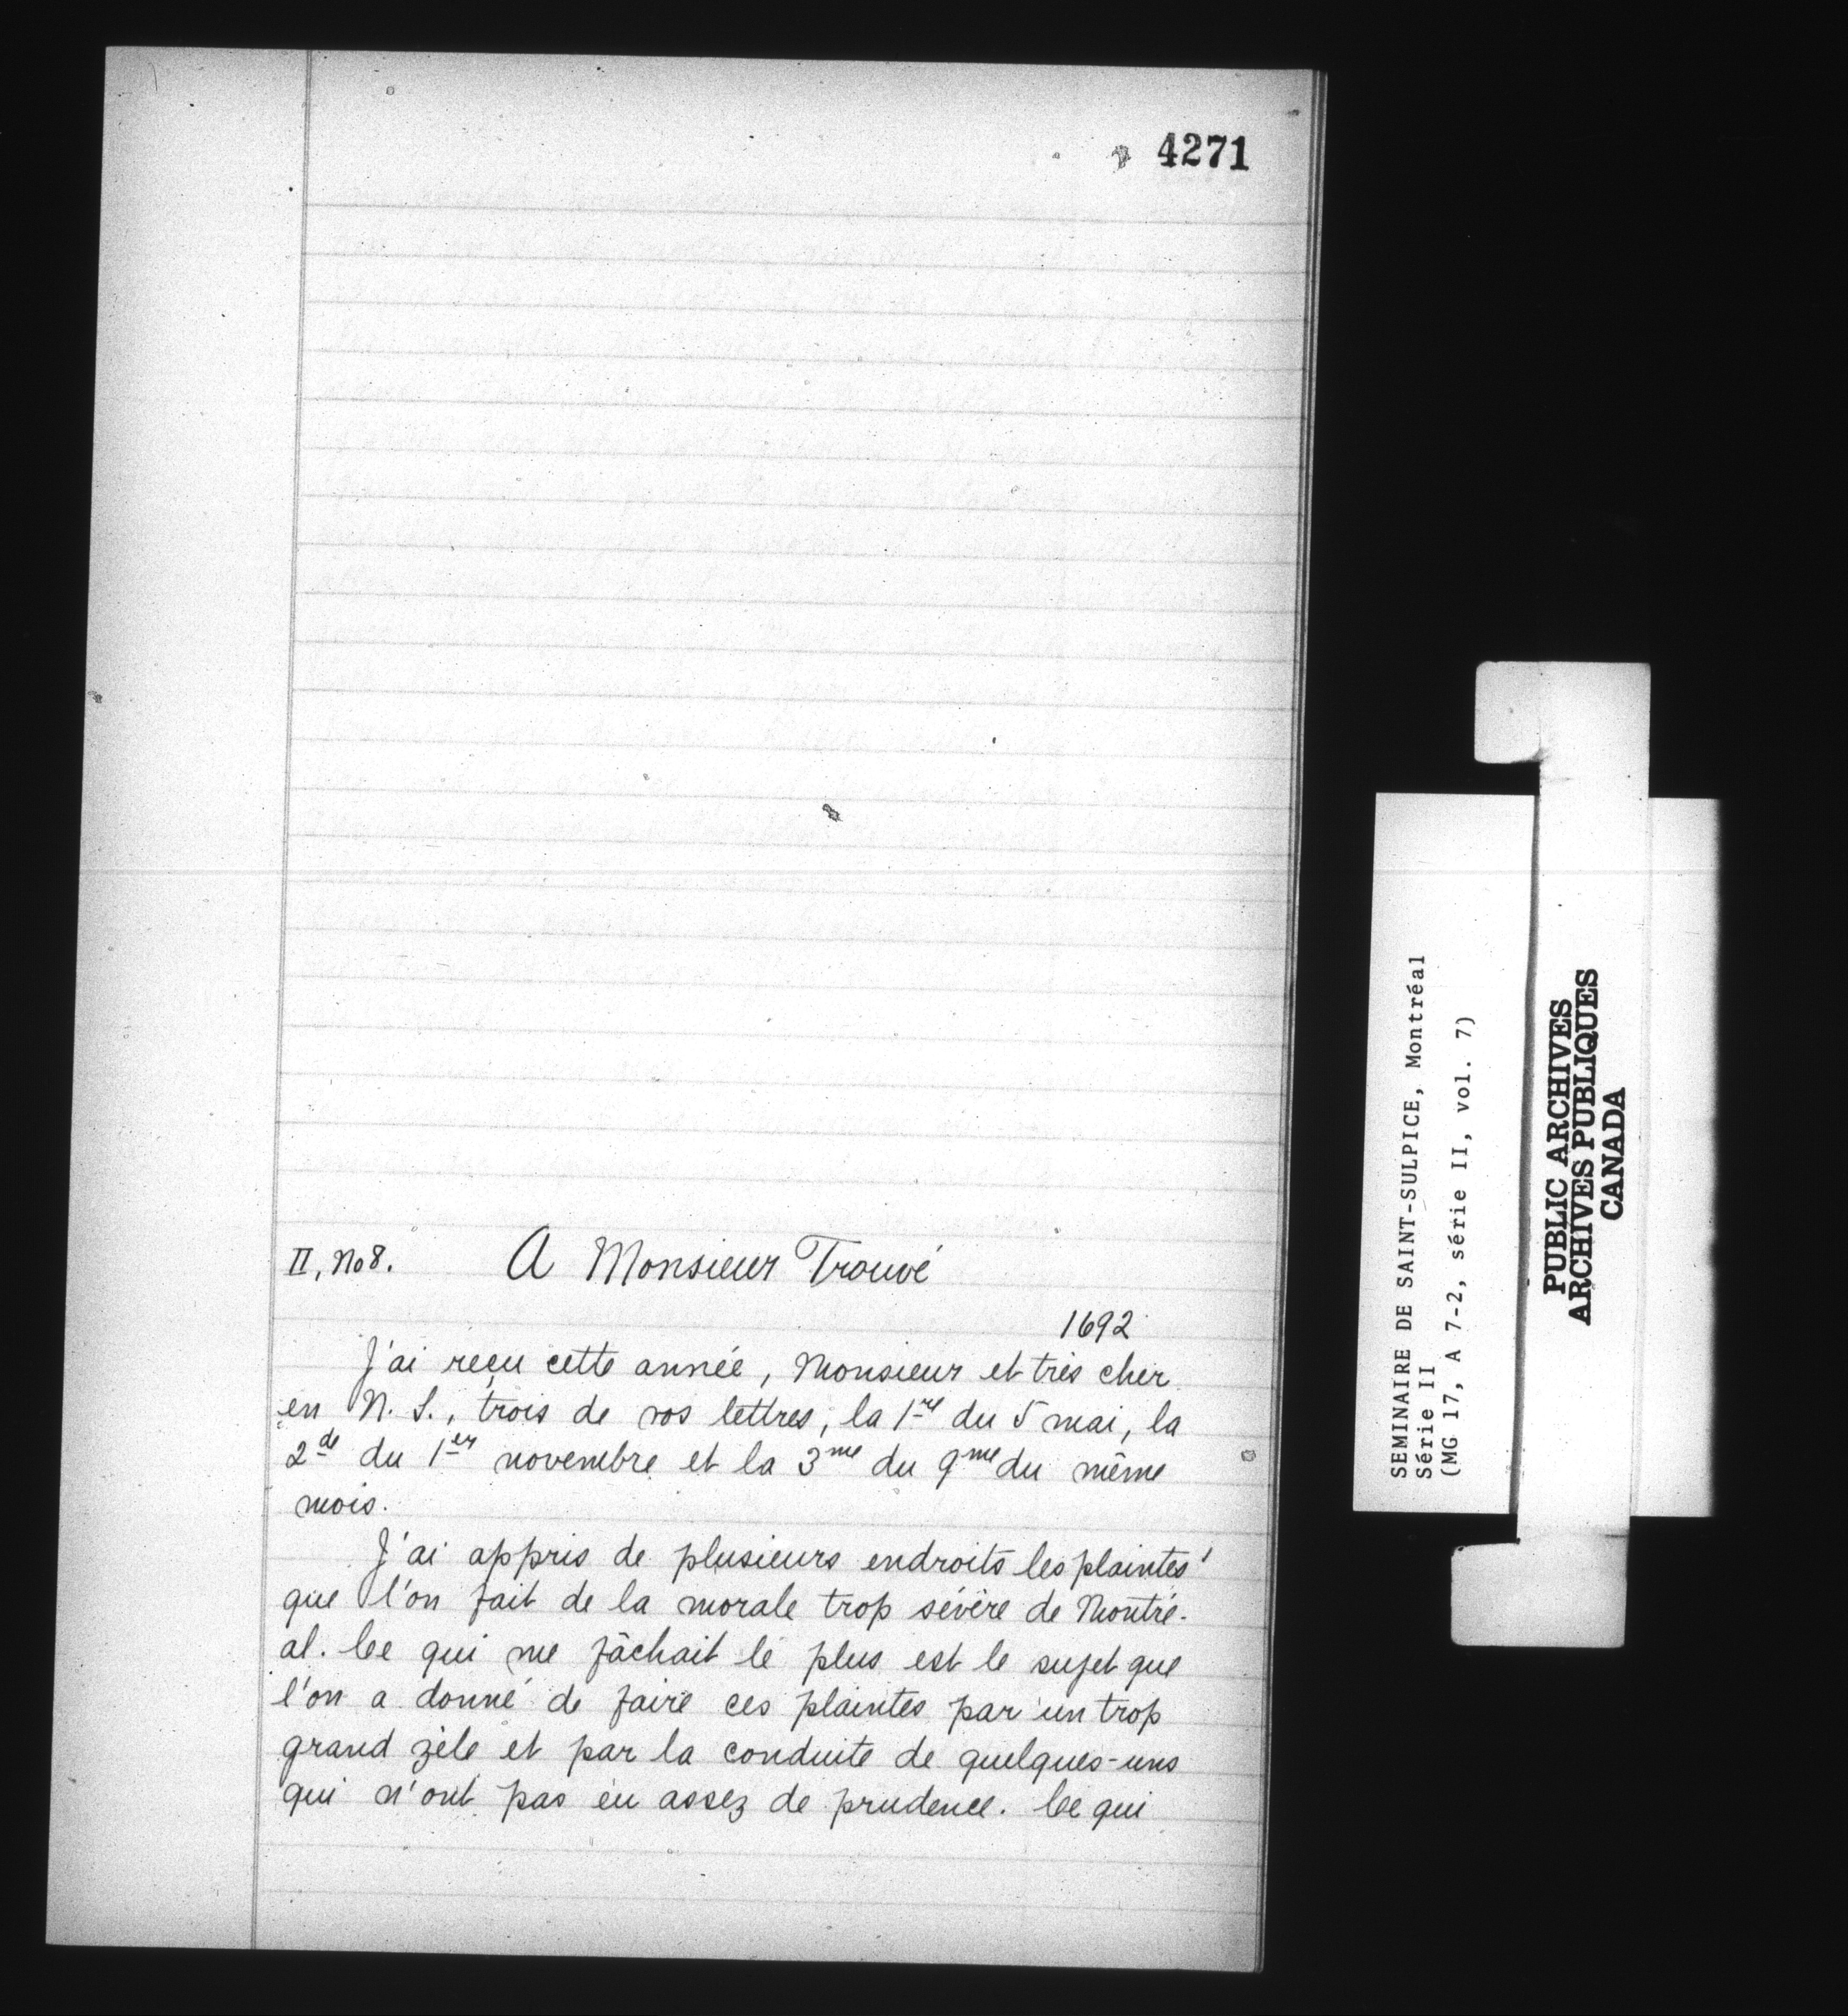 4271
II, No 8. A Monsieur Trouvé
1692
J'ai reçu cette année, Monsieur et très cher
en N. S., trois de vos lettres, la 1re du 5 mai, la
2de du 1er novembre et la 3me du 9me du même
mois.
J'ai appris de plusieurs endroits les plaintes
que l'on fait de la morale trop sévère de Montré-
al. Ce qui me fâchait le plus est le sujet que
l'on a donné de faire ces plaintes par un trop
grand zèle et par la conduite de quelques-uns
qui n'ont pas eu assez de prudence. Ce qui
SEMINAIRE DE SAINT-SULPICE, Montréal
Série II
(MG 17, A 7-2, série II, vol. 7)
PUBLIC ARCHIVES
ARCHIVES PUBLIQUES
CANADA